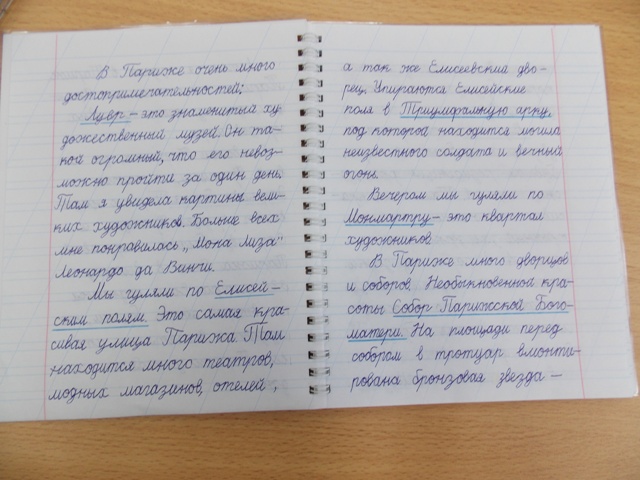 В Париже очень много
достопримечательностей:
Лувр - это знаменитый ху-
дожественный музей. Он та-
кой огромный, что его невоз-
можно пройти за один день.
Там я увидела картины вели-
ких художников. Больше всех
мне понравилась „Мона Лиза"
Леонардо да Винчи.
Мы гуляли по Елисей-
ским полям. Это самая кра-
сивая улица Парижа. Там
находится много театров,
модных магазинов, отелей,
а так же Елисеевский дво-
рец. Упираются Елисейские
поля в Триумфальную арку,
под которой находится могила
неизвестного солдата и вечный
огонь.
Вечером мы гуляли по
Монмартру - это квартал
художников.
В Париже много дворцов
и соборов. Необыкновенной кра-
соты Собор Парижской Бого-
матери. На площади перед
собором в тротуар вмонти-
рована бронзовая звезда -